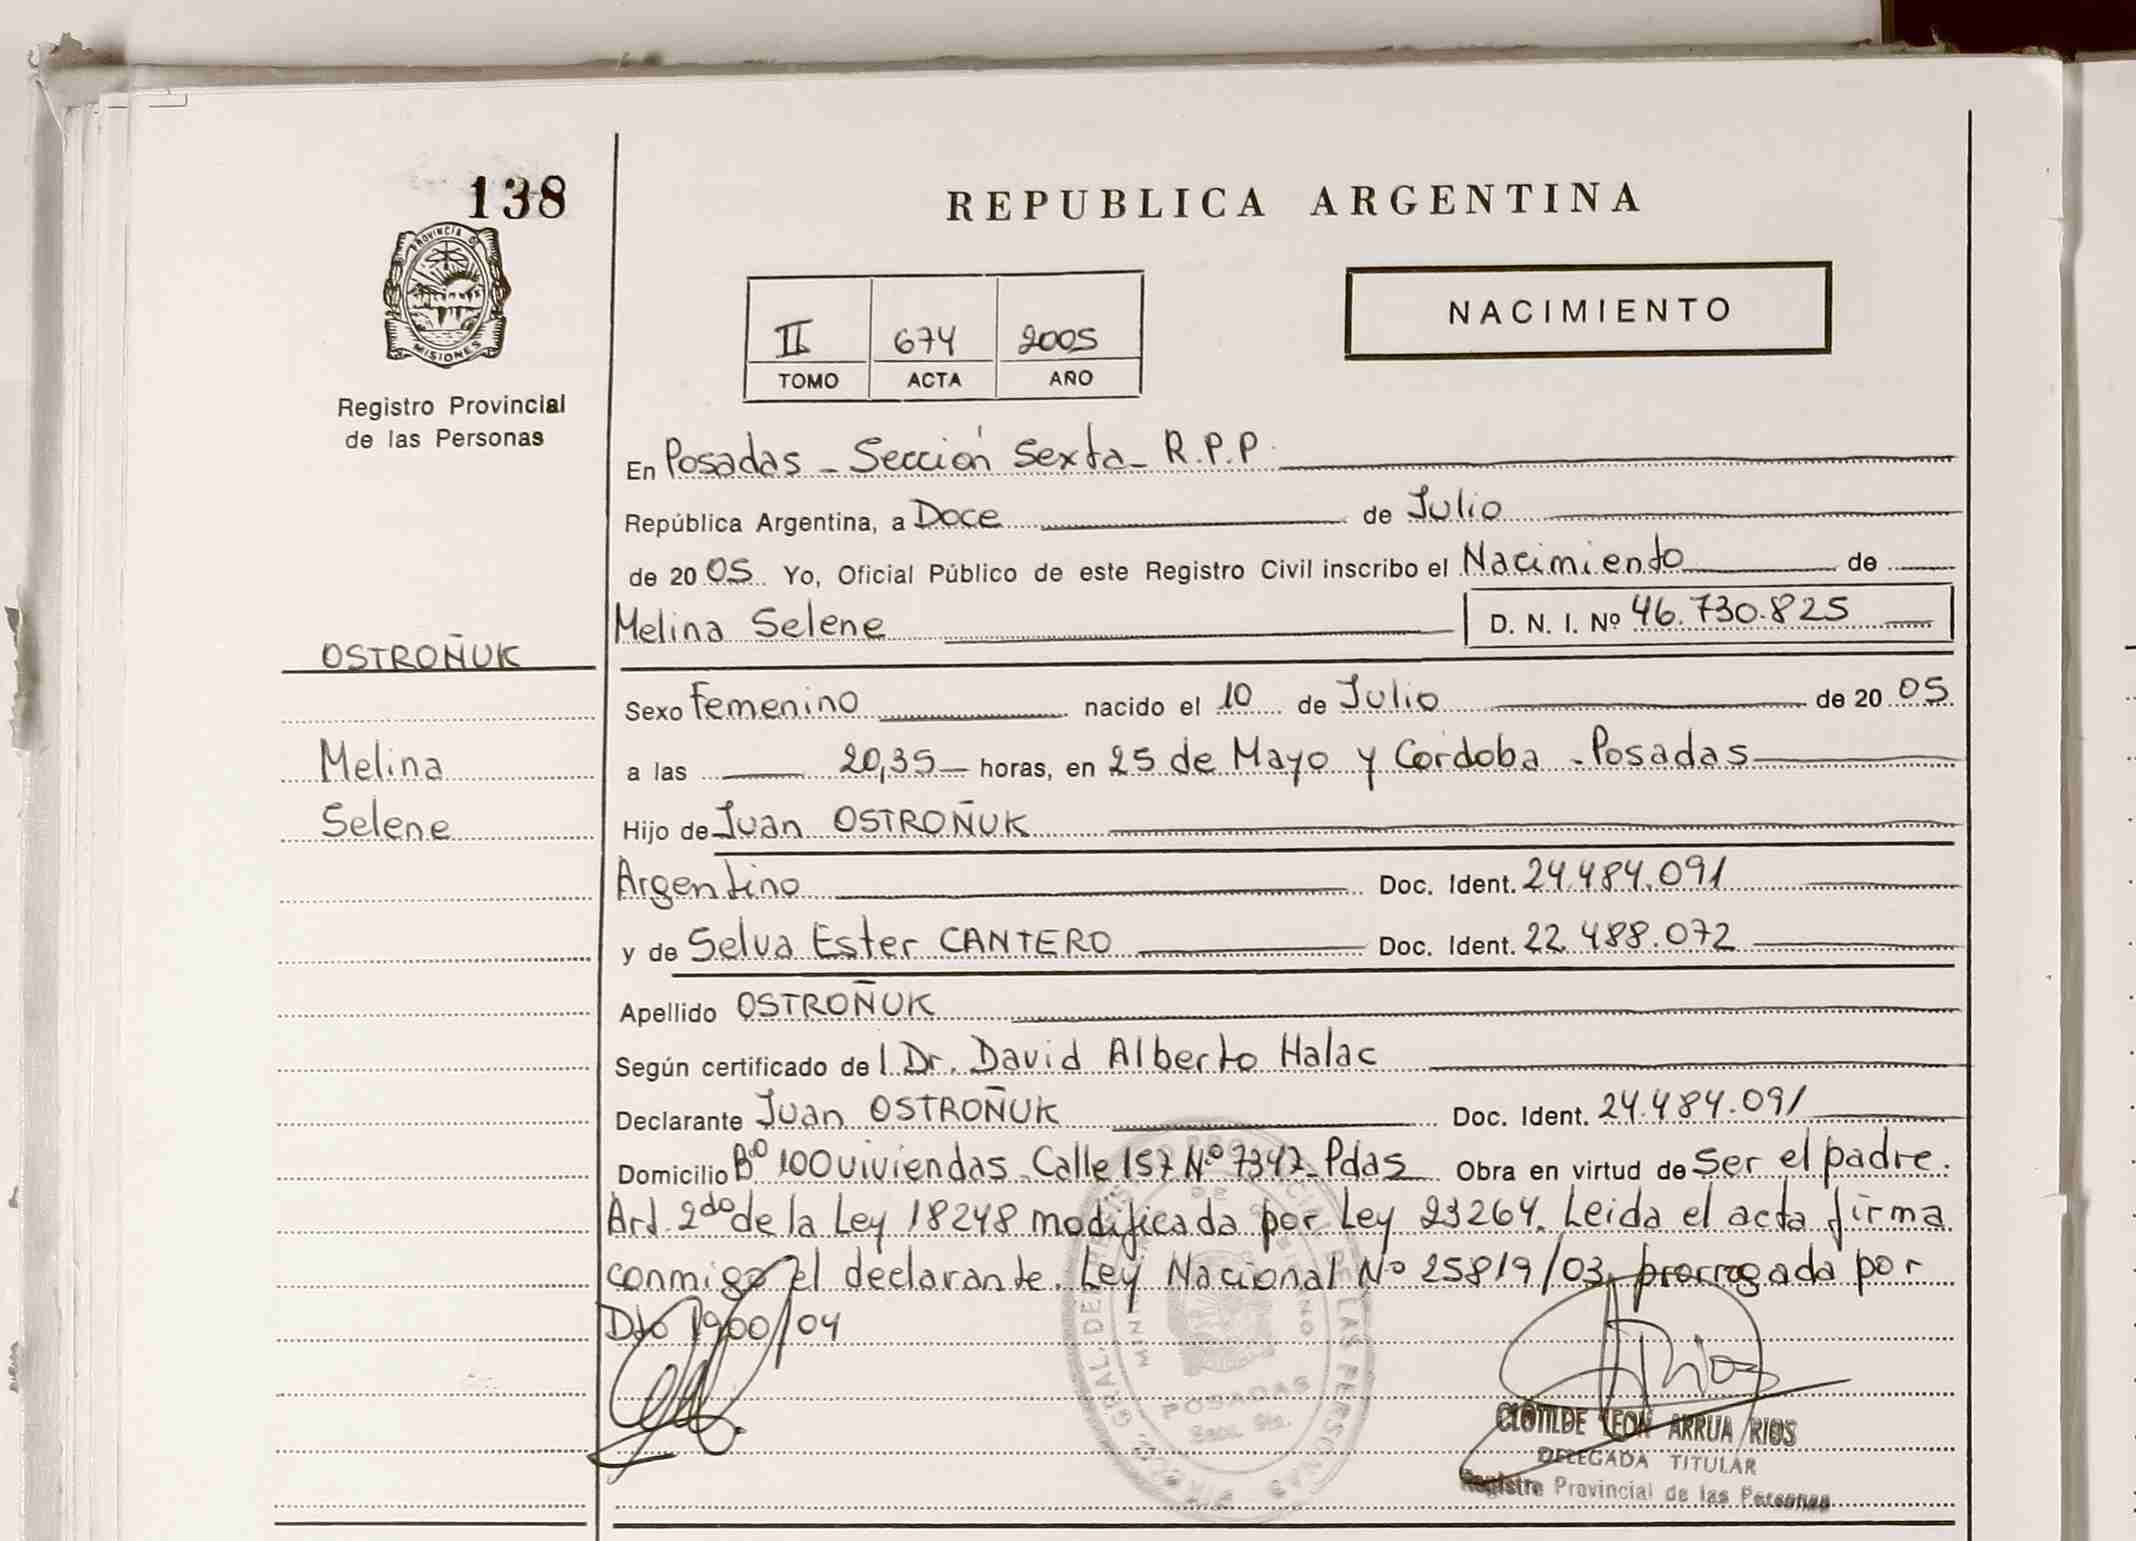 138
PROVINCIA DE
MISIONES
Registro Provincial
de las Personas
REPUBLICA ARGENTINA
NACIMIENTO
II 674 2005
TOMO ACTA AÑO
En Posadas - Sección Sexta - R.P.P.
República Argentina, a Doce de Julio
de 20 05 Yo, Oficial Público de este Registro Civil inscribo el Nacimiento de
Melina Selene D. N. I. Nº 46.730.825
OSTROÑUK
Sexo Femenino nacido el 10 de Julio de 20 05
Melina
a las 20,35 horas, en 25 de Mayo y Cordoba - Posadas
Selene
Hijo de Juan OSTROÑUK
Argentino Doc. Ident. 24.484.091
y de Selva Ester CANTERO Doc. Ident. 22.488.072
Apellido OSTROÑUK
Según certificado de l Dr. David Alberto Halac
Declarante Juan OSTROÑUK Doc. Ident. 24.484.091
Domicilio Bº 100 viviendas - Calle 157 Nº 7347 - Pdas Obra en virtud de ser el padre.
Art. 2do de la Ley 18248 modificada por Ley 23264. Leida el acta firma
conmigo el declarante. Ley Nacional Nº 25819/03, prorrogada por
Dto 1900/04
POSADAS
CLOTILDE LEON ARRUA RIOS
DELEGADA TITULAR
Registro Provincial de las Personas